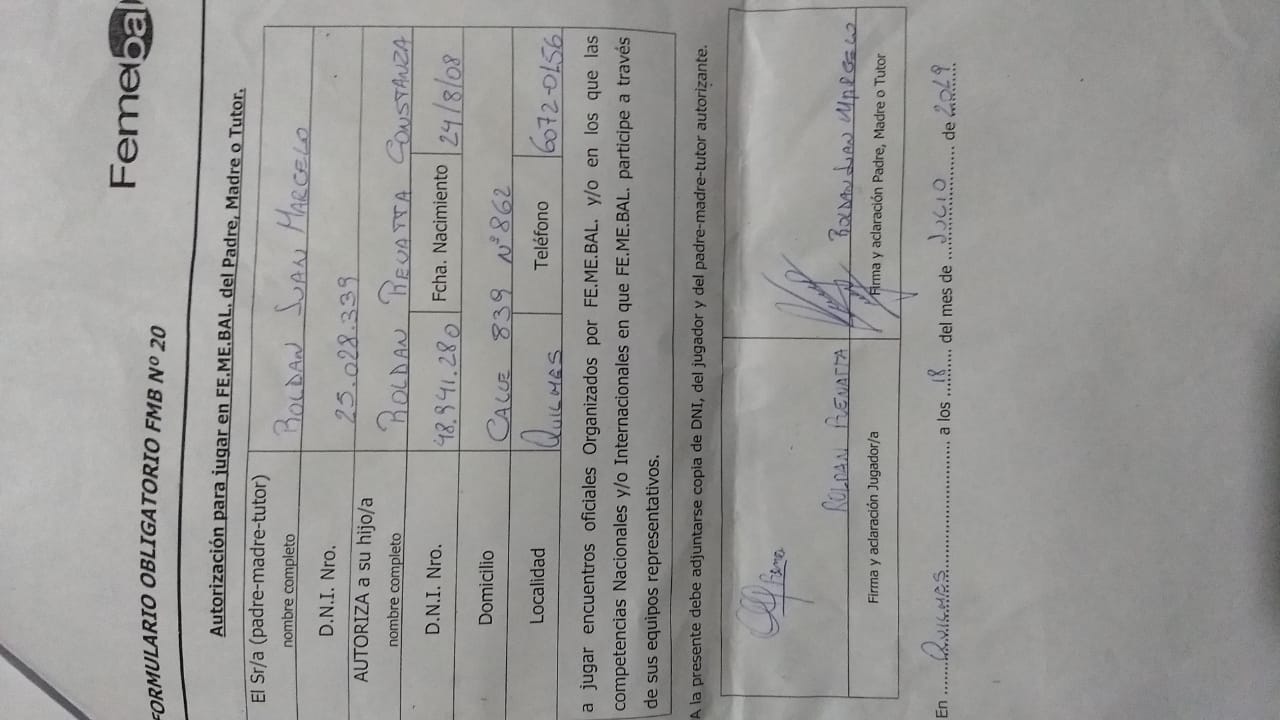 Femebal
FORMULARIO OBLIGATORIO FMB Nº 20
Autorización para jugar en FE.ME.BAL. del Padre, Madre o Tutor.
El Sr/a (padre-madre-tutor)
nombre completo ROLDAN JUAN MARCELO
D.N.I. Nro. 25.028.339
AUTORIZA a su hijo/a
nombre completo ROLDAN RENATTA CONSTANZA
D.N.I. Nro. 48.941.280 Fcha. Nacimiento 24/8/08
Domicilio CALLE 839 Nº 862
Localidad QUILMES Teléfono 6072-0156
a jugar encuentros oficiales Organizados por FE.ME.BAL. y/o en los que las
competencias Nacionales y/o Internacionales en que FE.ME.BAL. participe a través
de sus equipos representativos.
A la presente debe adjuntarse copia de DNI, del jugador y del padre-madre-tutor autorizante.
ROLDAN RENATTA ROLDAN JUAN MARCELO
Firma y aclaración Jugador/a Firma y aclaración Padre, Madre o Tutor
En QUILMES a los 18 del mes de JULIO de 2019